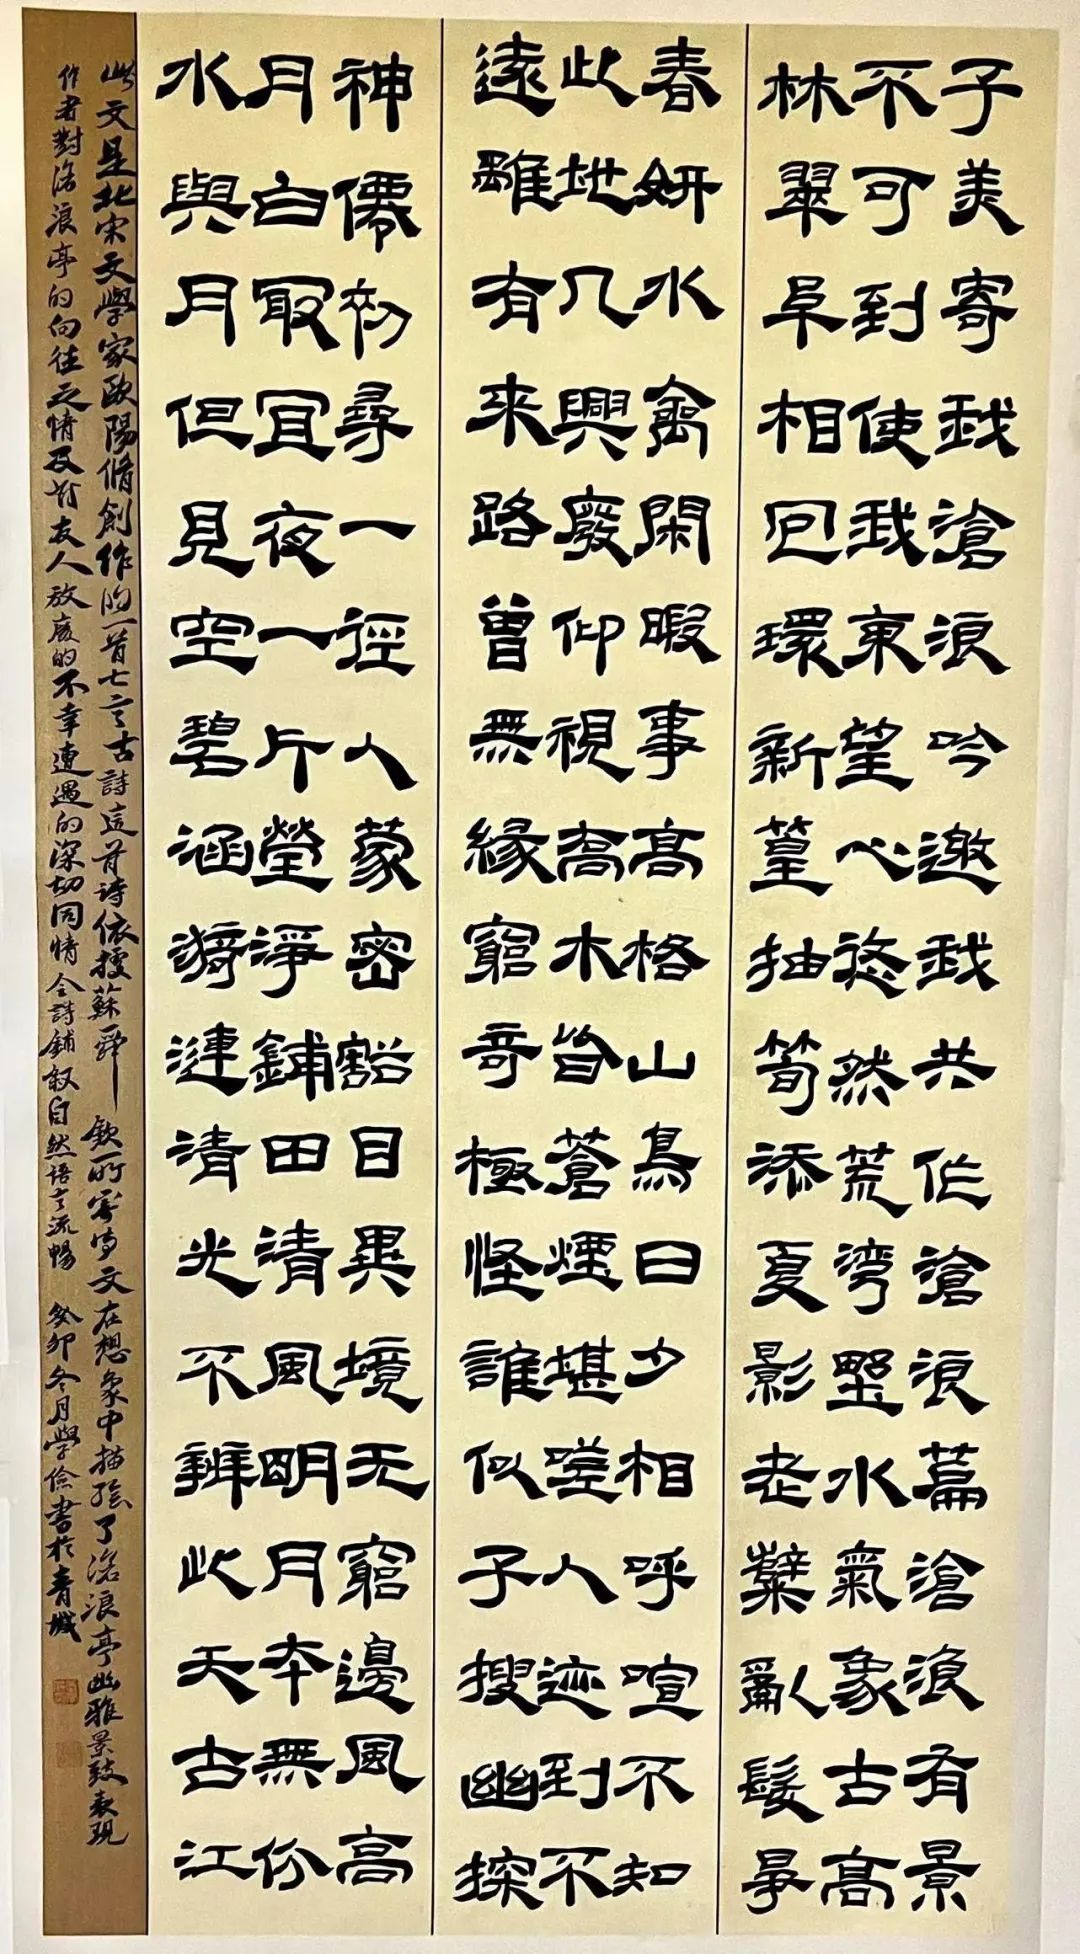 子美寄我滄浪吟邀我共作滄浪篇滄浪有景
不可到使我東望心悠然荒灣墅水氣象古高
林翠阜相回環新篁抽筍添夏影老蘖亂髮爭
春妍水禽閑暇事高格山鳥日夕相呼喧不知
此地几興廢仰視喬木皆蒼煙堪嗟人迹到不
遠雖有來路曾無緣窮奇極怪誰似子搜幽探
神僊初尋一徑人蒙密豁目異境无窮邊風高
月白冣宜夜一片瑩淨鋪田清風明月本無价
水與月但見空碧涵漪漣清光不辨此天古江
此文是北宋文學家歐陽脩創作的一首七言古詩這首詩依據蘇舜欽所寄詩文在想象中描繪了滄浪亭幽雅景致表現
作者對滄浪亭的向往之情及對友人放廢的不幸遭遇的深切同情全詩鋪叙自然語言流暢 癸卯冬月學儉書於青城